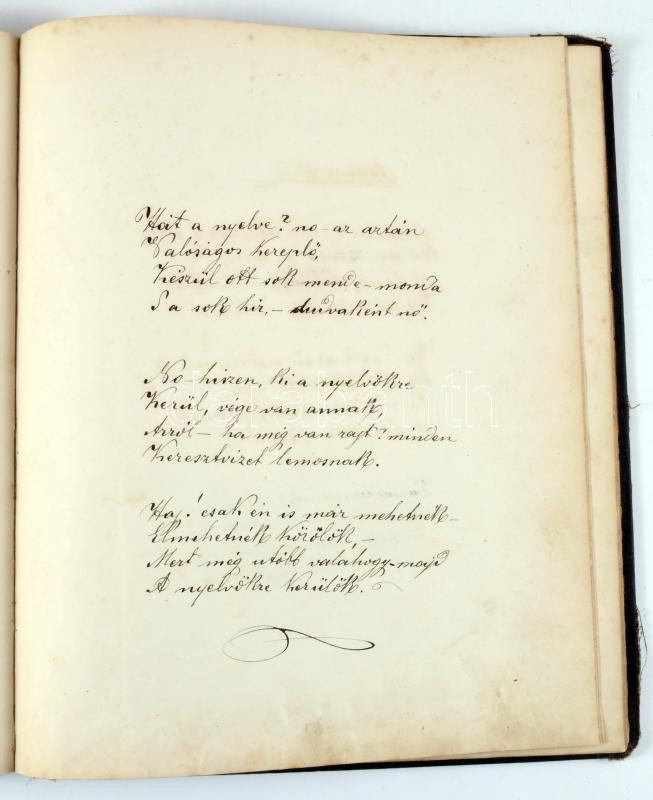 Hát a nyelve? no – az aztán
Valóságos kereplő,
Készül ott sok mende-monda
S a sok hir, – dudvaként nő.
No hiszen, ki a nyelvökre
Kerül, vége van annak,
Arról – ha még van rajt? minden
Keresztvizet lemosnak.
Haj! csak én is már mehetnék –
Elmehetnék körölök, –
Mert még utóbb valahogy majd
A nyelvökre kerülök.
darabanth